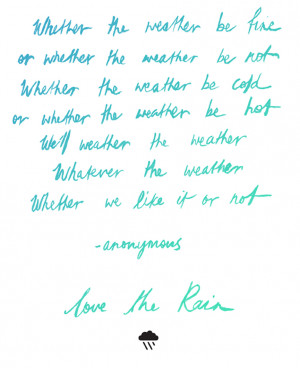 Whether the weather be fine
or whether the weather be not
Whether the weather be cold
or whether the weather be hot
We'll weather the weather
Whatever the weather
Whether we like it or not
-anonymous
love the Rain